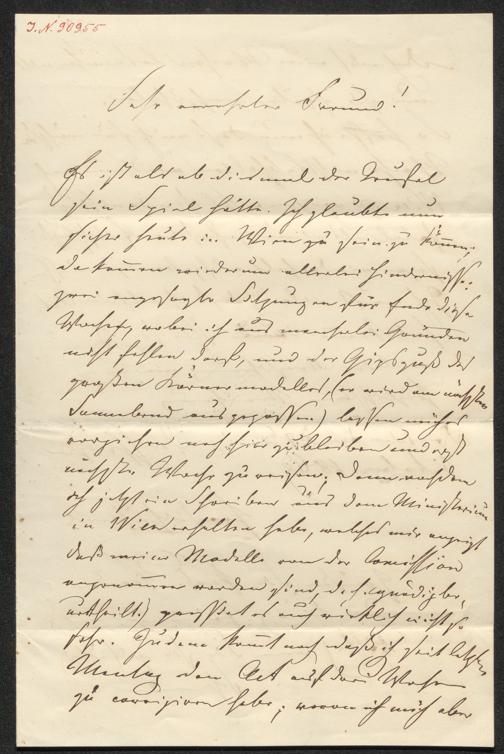 I. N. 90955
Sehr verehrter Freund!
Es ist als ob diesmal der Teufel
sein Spiel hätte. Ich glaubte nun
sicher heute in Wien zu sein zu können,
da kommen wiederum allerlei Hindernisse:
zwei angesagte Sitzungen für Ende dieser
Woche, wobei ich aus mancherlei Gründen
nicht fehlen darf, und der Gipsguß des
großen Körnermodelles, (er wird am nächsten
Sonnabend ausgegossen) lassen mich es
vorziehen noch hier zu bleiben und erst
nächste Woche zu reisen; denn nachdem
ich jetzt ein Schreiben aus dem Ministerium
in Wien erhalten habe, welches mir anzeigt
daß meine Modelle von der Comission
angenommen worden sind, d. h. (gnädig be-
urtheilt) es auch wirklich nicht so
sehr. Zudem kommt noch daß ich seit letzten
Montag den Act auf der
zu corrigiren habe; wovon ich mich aber